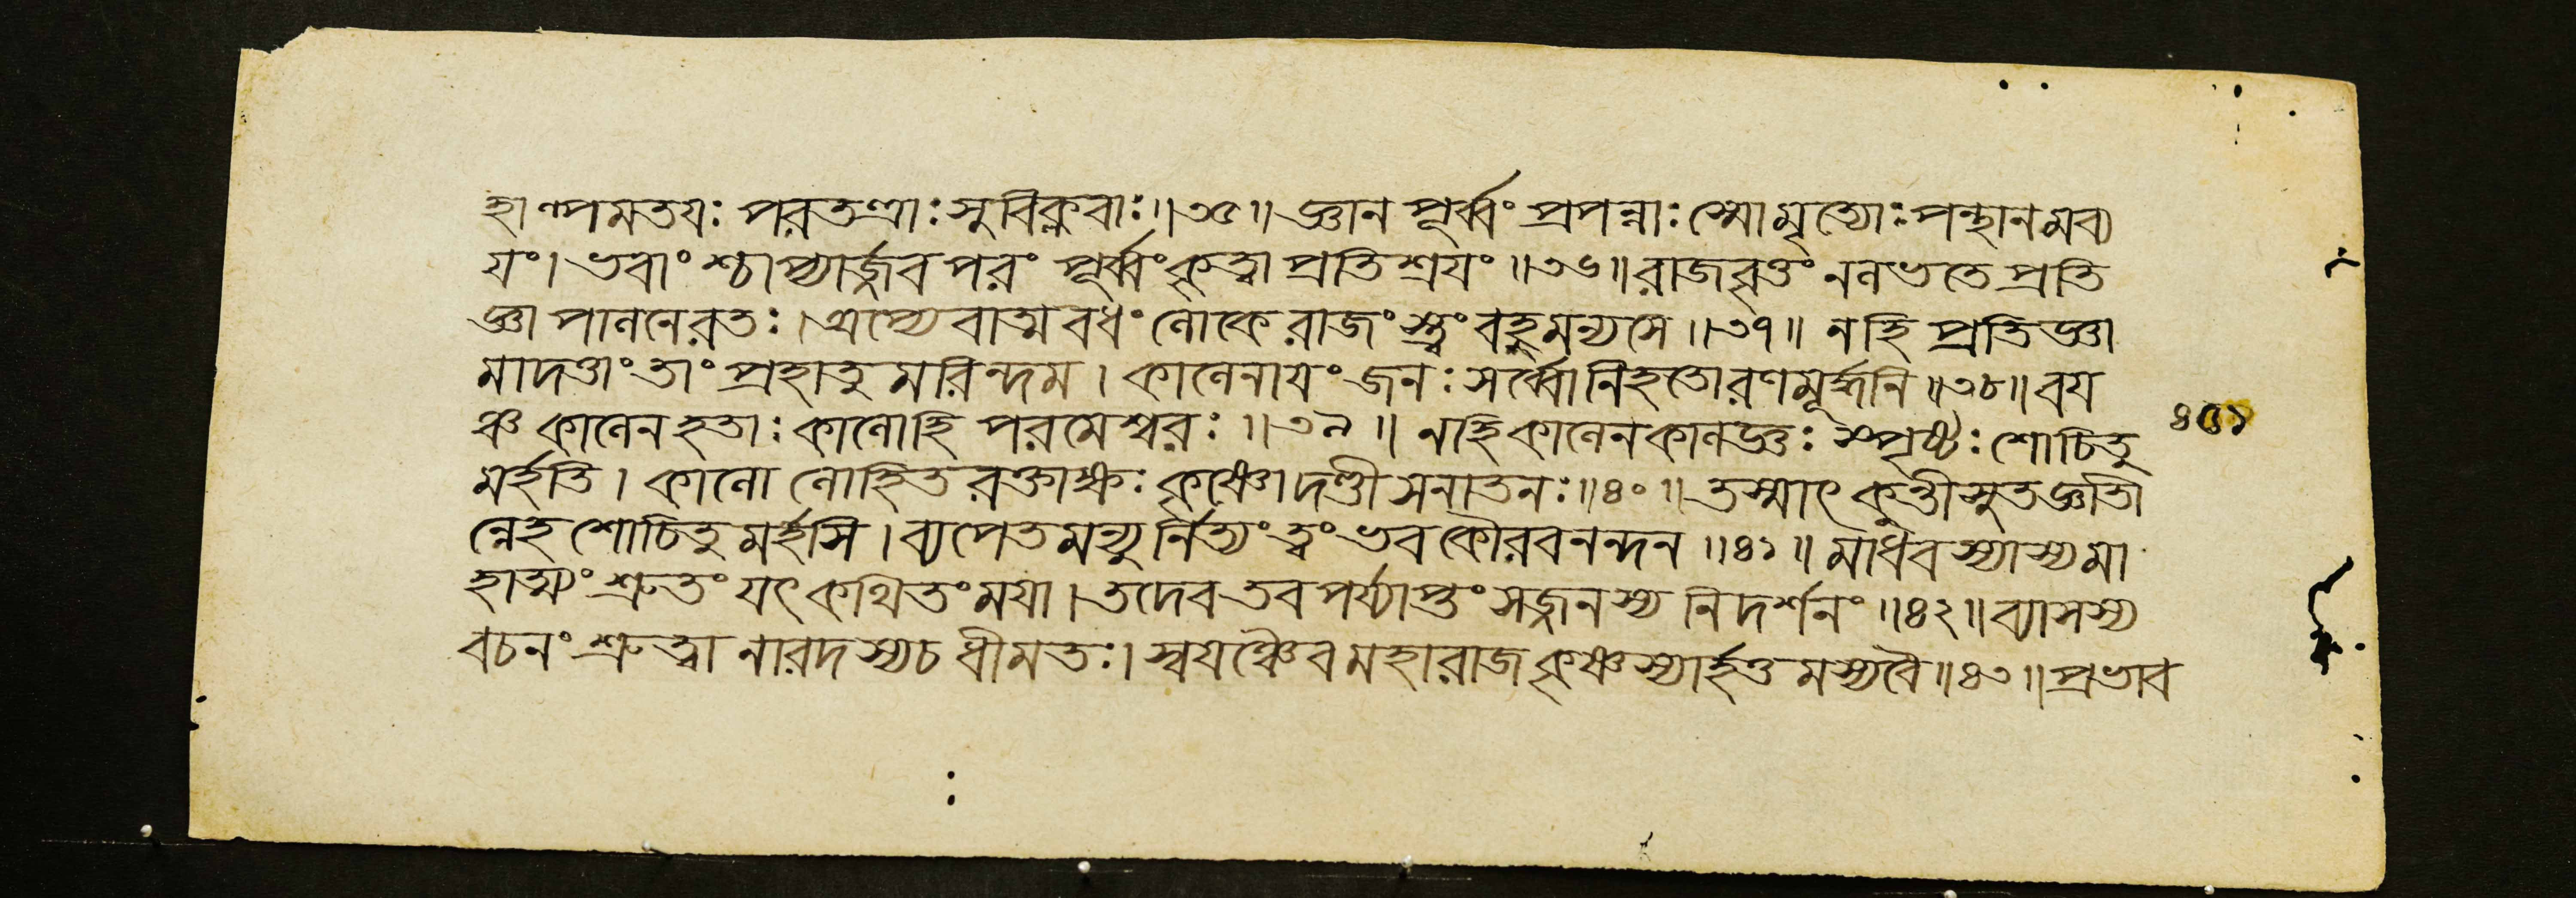 হাল্পমতয়ঃ পরতন্ত্রাঃ সুবিক্লবাঃ॥৩৫॥ জ্ঞান পূর্ব্বং প্রপন্নাঃ স্মো মৃত্যোঃ পন্থানমব্য
য়ং। ভবাংশ্চাপ্যার্জ্জব পরং পূর্ব্বং কৃত্বা প্রতিশ্রয়ং॥৩৬॥ রাজবৃত্তং ন লভতে প্রতি
জ্ঞা পালনে রতঃ। অপ্যেবাত্মবধং লোকে রাজংস্ত্বং বহুমন্যসে॥৩৭॥ নহি প্রতিজ্ঞা
মাদত্তাং তাং প্রহাতুমরিন্দম। কালেনায়ং জনঃ সর্ব্বো নিহতো রণমূর্দ্ধনি॥৩৮॥ বয়
ঞ্চ কালেন হতাঃ কালো হি পরমেশ্বরঃ॥৩৯॥ নহি কালেন কালজ্ঞঃ স্পৃষ্টঃ শোচিতু
মর্হতি। কালো লোহিত রক্তাক্ষঃ কৃষ্ণো দণ্ডী সনাতনঃ॥৪০॥ তস্মাৎ কুন্তীসুত জ্ঞাতী
ন্নেহ শোচিতুমর্হসি। ব্যপেতমন্যুর্নিত্যং ত্বং ভব কৌরবনন্দন॥৪১॥ মাধবস্যাস্য মা
হাত্ম্যং শ্রুতং যৎ কথিতং ময়া। তদেব তব পর্য্যাপ্তং সজ্জনস্য নিদর্শনং॥৪২॥ ব্যাসস্য
বচনং শ্রুত্বা নারদস্য চ ধীমতঃ। স্বয়ঞ্চৈব মহারাজ কৃষ্ণস্যার্হতমস্য বৈ॥৪৩॥ প্রভাব